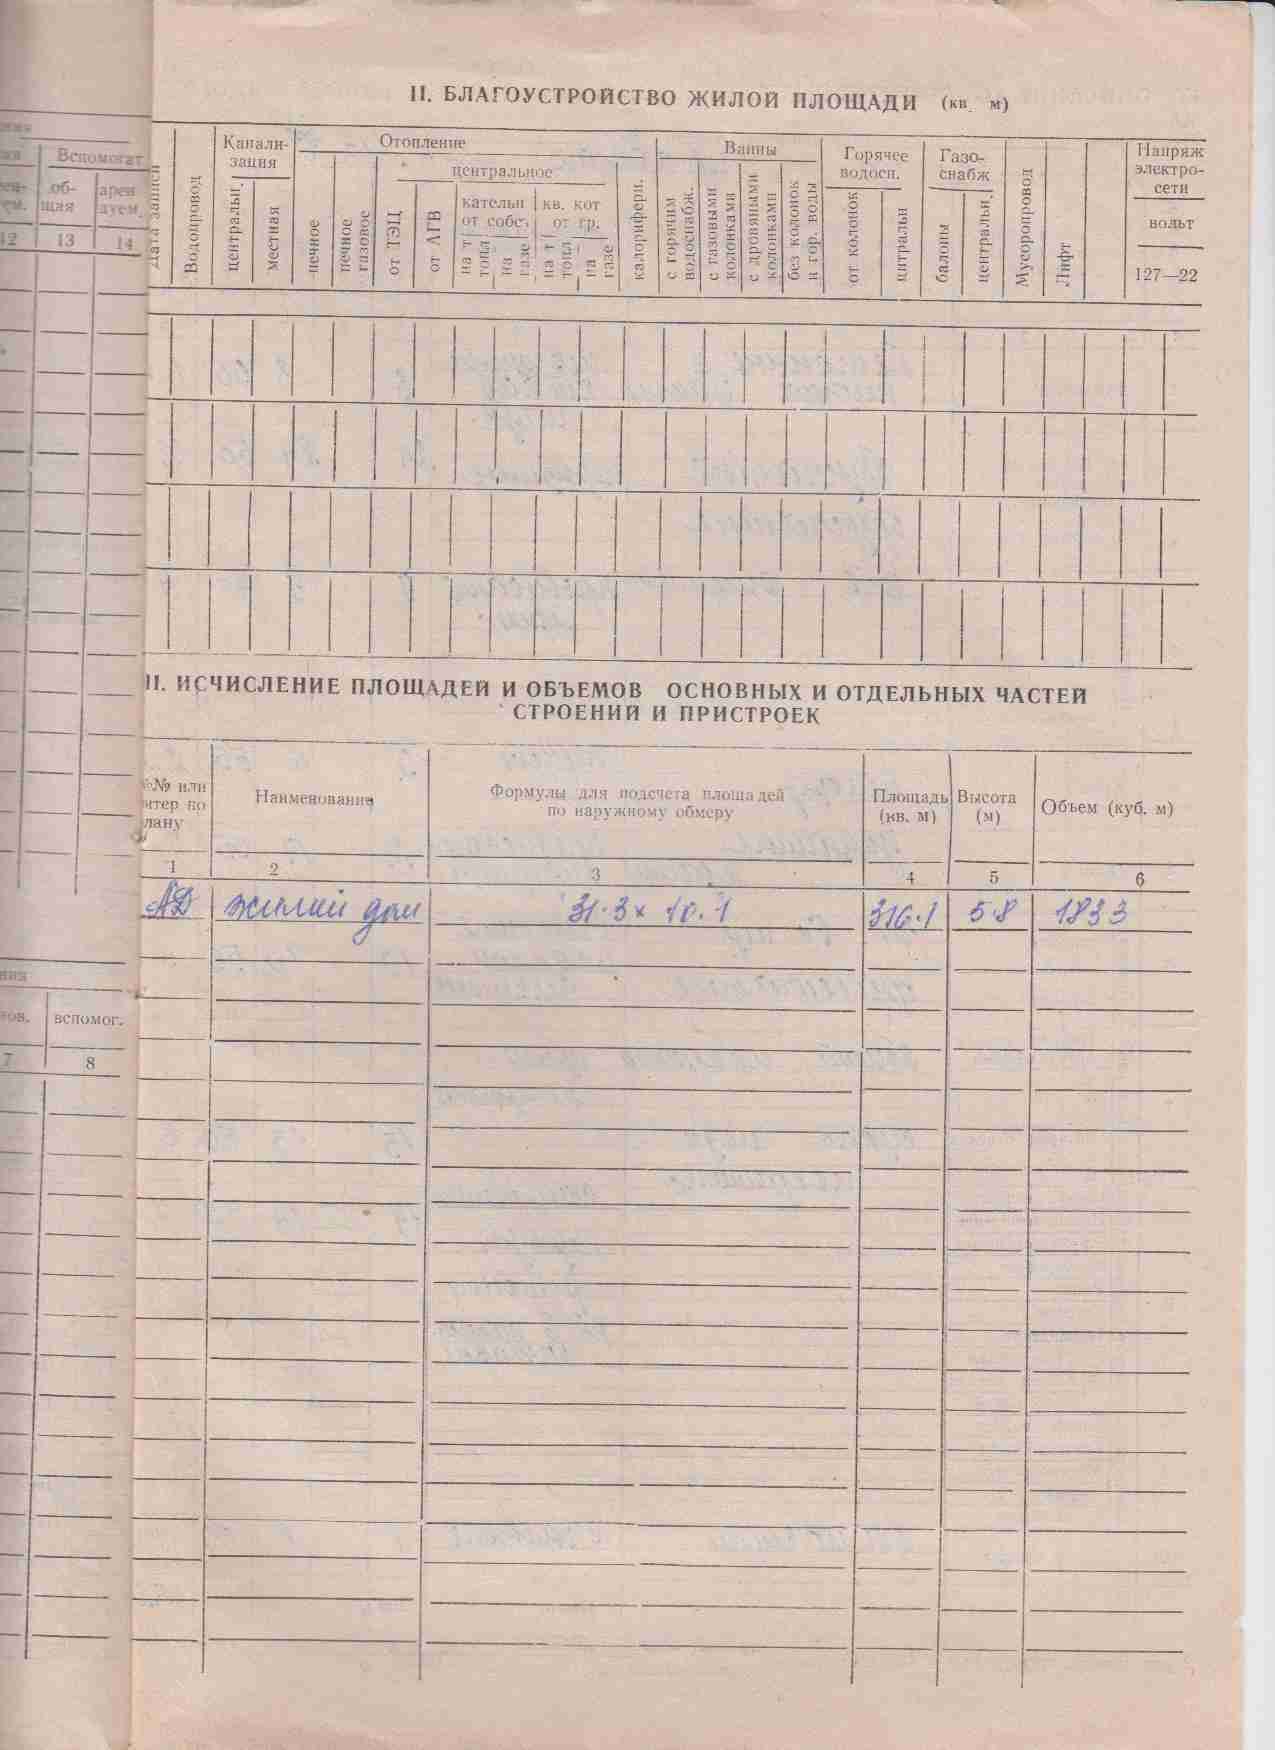 II. БЛАГОУСТРОЙСТВО ЖИЛОЙ ПЛОЩАДИ (кв. м)
Дата записи
Водопровод
Канали-
зация
центральн.
местная
Отопление
печное
печное
газовое
центральное
от ТЭЦ
от АГВ
кательн
от собс.
на т
топл
на
газе
кв. кот
от гр.
на т
топл
на
газе
калорифери.
Ванны
с горячим
водоснабж.
с газовыми
колонками
с дровяными
колонками
без колонок
и гор. воды
Горячее
водосн.
от колонок
цнтральн
Газо-
снабж
балоны
центральн.
Мусоропровод
Лифт
Напряж
электро-
сети
вольт
127—22
Вспомогат
об-
щая
арен
дуем.
12 13 14
II. ИСЧИСЛЕНИЕ ПЛОЩАДЕЙ И ОБЪЕМОВ ОСНОВНЫХ И ОТДЕЛЬНЫХ ЧАСТЕЙ
СТРОЕНИЙ И ПРИСТРОЕК
№№ или
итер по
лану
Наименование
Формулы для подсчета площадей
по наружному обмеру
Площадь
(кв. м)
Высота
(м)
Объем (куб. м)
1 2 3 4 5 6
АД жилий дом 31.3 х 10.1 316.1 5.8 1833
ния
нов.
вспомог.
7 8